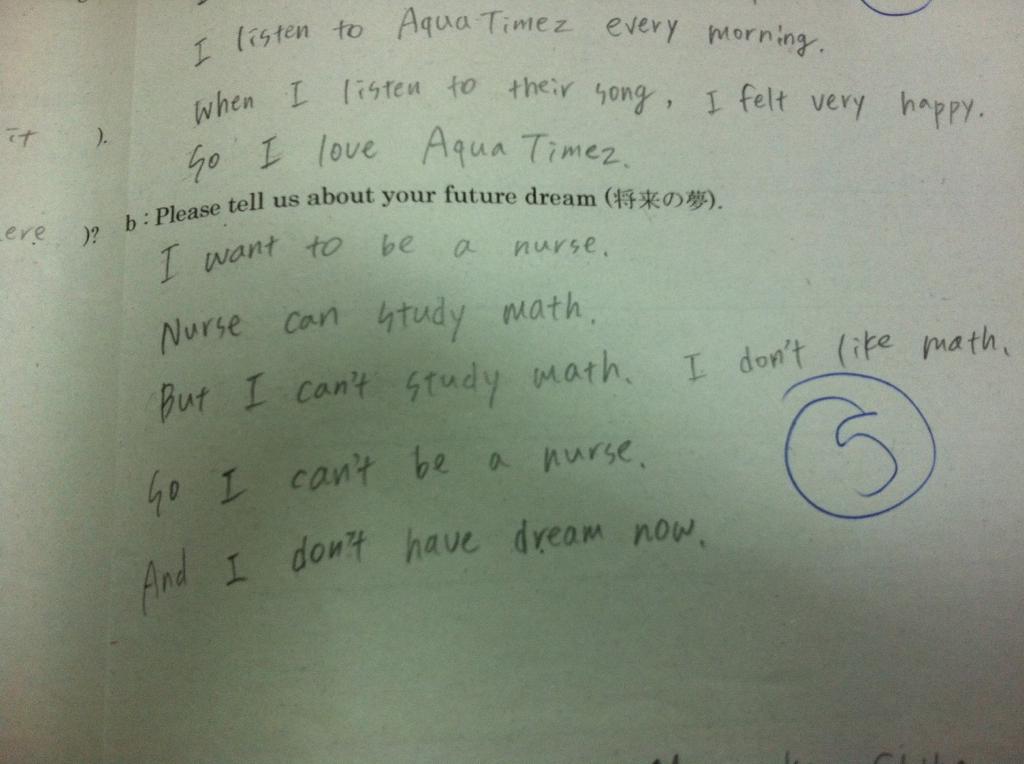 I listen to Aqua Timez every morning.
When I listen to their song, I felt very happy.
it ).
So I love Aqua Timez.
b : Please tell us about your future dream (将来の夢).
ere )?
I want to be a nurse.
Nurse can study math.
But I can't study math. I don't like math.
So I can't be a nurse.
5
And I don't have dream now.